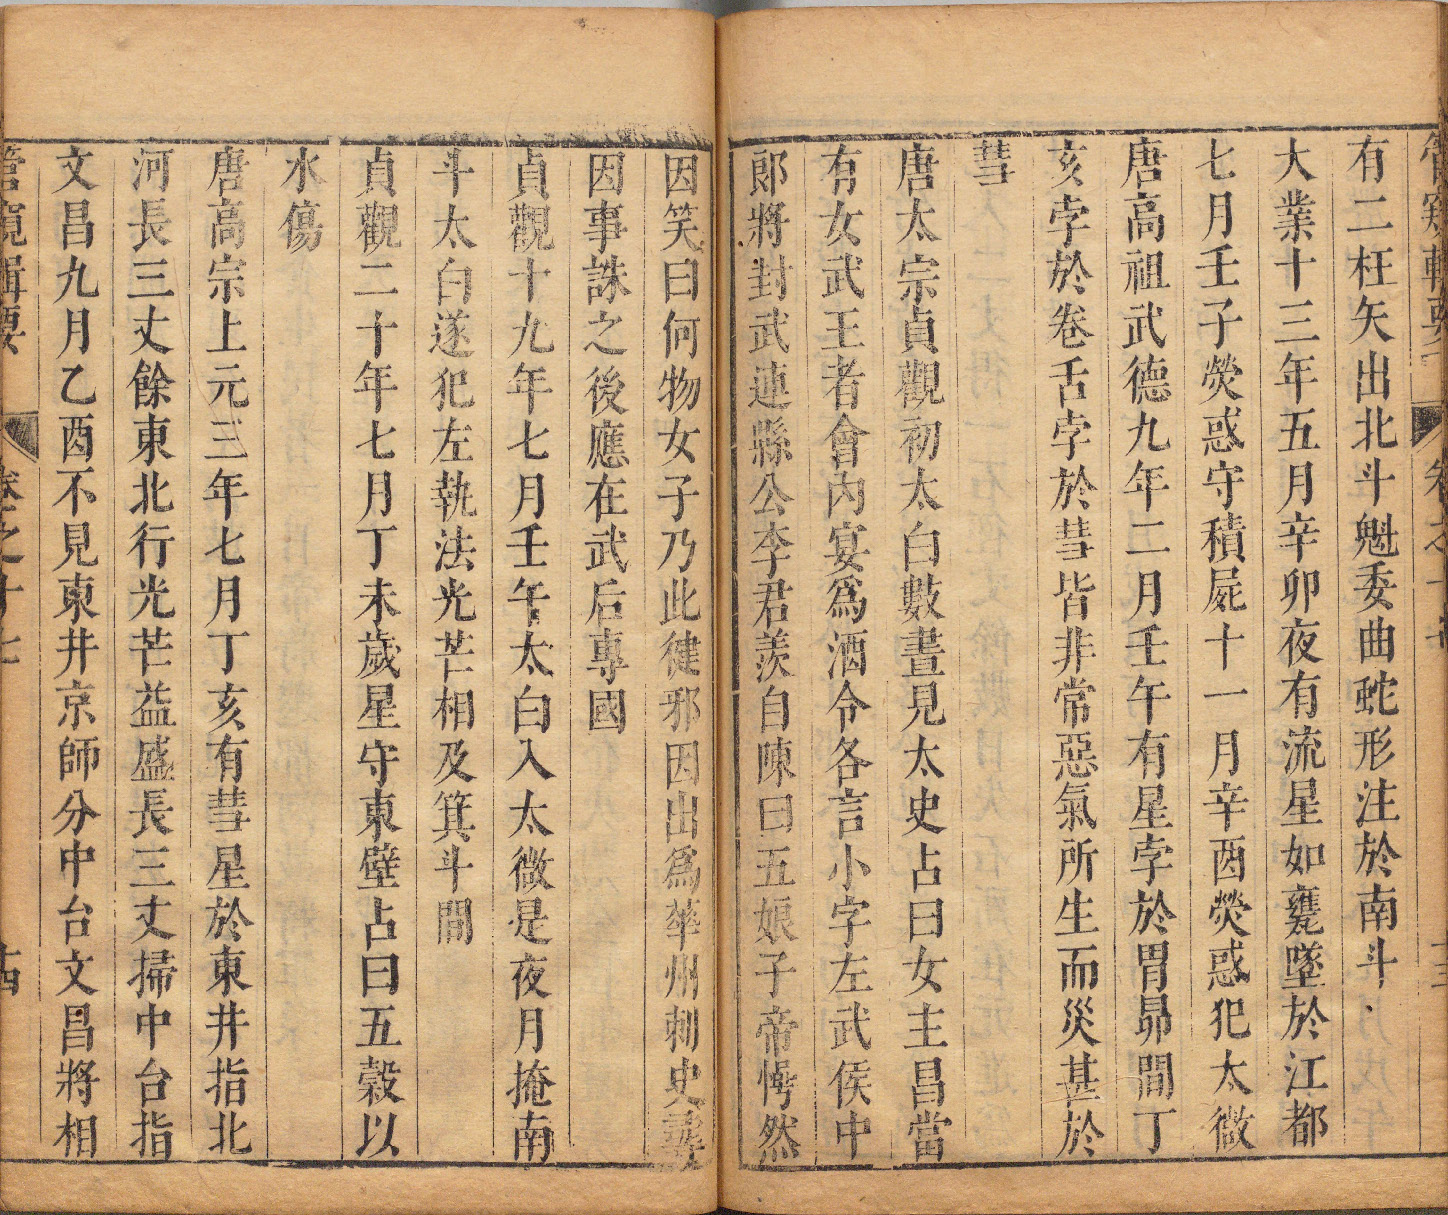 管窺輯要 卷之十七 十三
有二枉矢出北斗魁委曲蛇形注於南斗
大業十三年五月辛卯夜有流星如甕墜於江都
七月壬子熒惑守積屍十一月辛酉熒惑犯太微
唐高祖武德九年二月壬午有星孛於胃昴間丁
亥孛於卷舌孛於彗皆非常惡氣所生而災甚於
彗
唐太宗貞觀初太白數晝見太史占曰女主昌當
有女武王者會內宴為酒令各言小字左武侯中
郎將封武連縣公李君羨自陳曰五娘子帝愕然
因笑曰何物女子乃此健邪因出為華州刺史尋
因事誅之後應在武后專國
貞觀十九年七月壬午太白入太微是夜月掩南
斗太白遂犯左執法光芒相及箕斗間
貞觀二十年七月丁未歲星守東壁占曰五穀以
水傷
唐高宗上元三年七月丁亥有彗星於東井指北
河長三丈餘東北行光芒益盛長三丈掃中台指
文昌九月乙酉不見東井京師分中台文昌將相
管窺輯要 卷之十七 十四